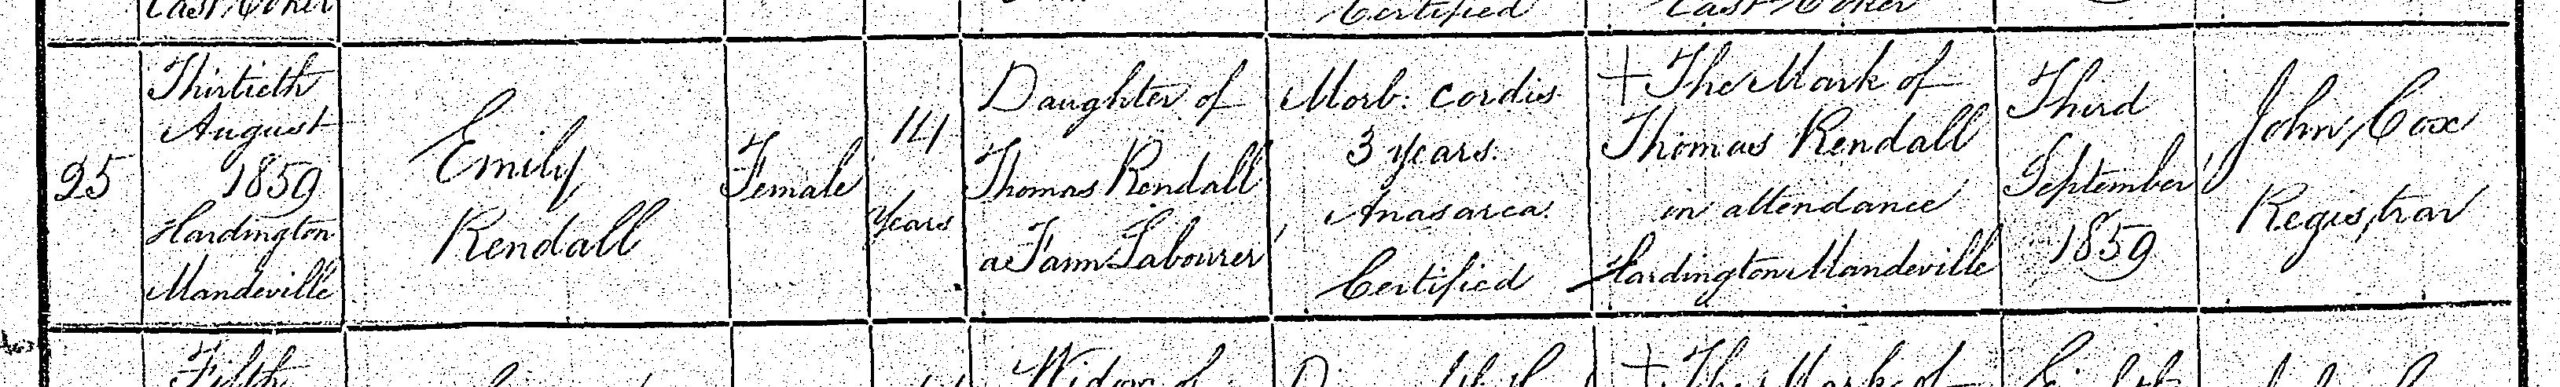 East Coker
Certified
East Coker
25
Thirtieth
August
1859
Hardington
Mandeville
Emily
Rendall
Female
14
Years
Daughter of
Thomas Rendall
a Farm Labourer
Morb: Cordis
3 years.
Anasarca.
Certified
+ The Mark of
Thomas Rendall
in attendance
Hardington Mandeville
Third
September
1859
John Cox
Registrar
Fifth
Widow of
+ The Mark of